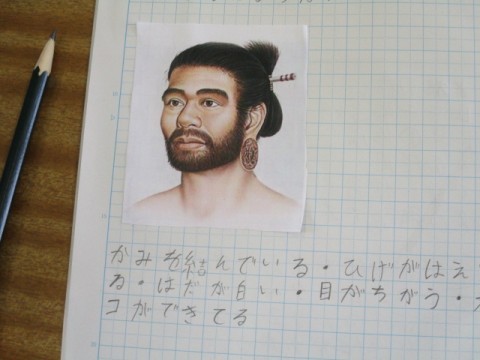 かみを結んでいる・ひげがはえ
る・はだが白い・目がちがう・
コができてる